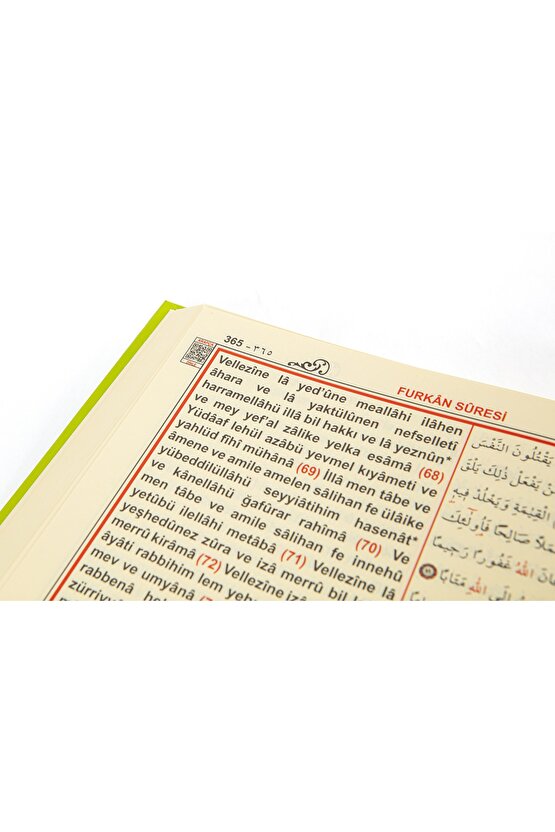 365 - ٣٦٥
FURKÂN SÛRESİ
Vellezîne lâ yed'ûne meallâhi ilâhen
âhara ve lâ yaktülûnen nefselletî
harramellâhü illâ bil hakkı ve lâ yeznûn*
ve mey yef'al zâlike yelka esâmâ (68)
Yüdâaf lehül azâbü yevmel kıyâmeti ve
yahlüd fîhî mühânâ (69) İllâ men tâbe ve
âmene ve amile amelen sâlihan fe ülâike
yübeddilüllâhü seyyiâtihim hasenât*
ve kânellâhü ğafûrar rahîmâ (70) Ve
men tâbe ve amile sâlihan fe innehû
yetûbü ilellâhi metâbâ (71) Vellezîne lâ
yeşhedûnez zûra ve izâ merrû bil
merrû kirâmâ (72) Vellezîne izâ
âyâti rabbihim lem yeh
mev ve umyânâ
rabbenâ
zürriyy
يَقْتُلُونَ النَّفْسَ
يَفْعَلْ ذٰلِكَ يَلْقَ
الْقِيٰمَةِ وَيَخْلُدْ فِيهِ
صَالِحًا فَاُولٰٓئِكَ
اللّٰهُ غَفُورًا رَحِيمًا
اللّٰهِ مَتَابًا